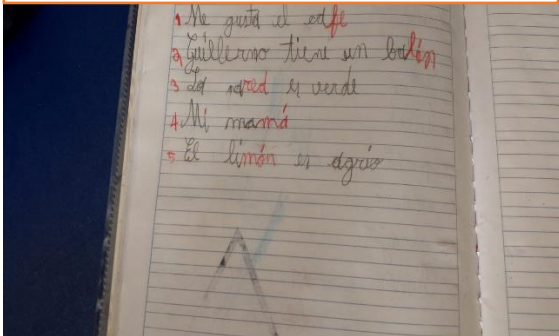 1 Me gusta el cafe
2 Guillermo tiene un balón
3 La pared es verde
4 Mi mamá
5 El limón es agrio